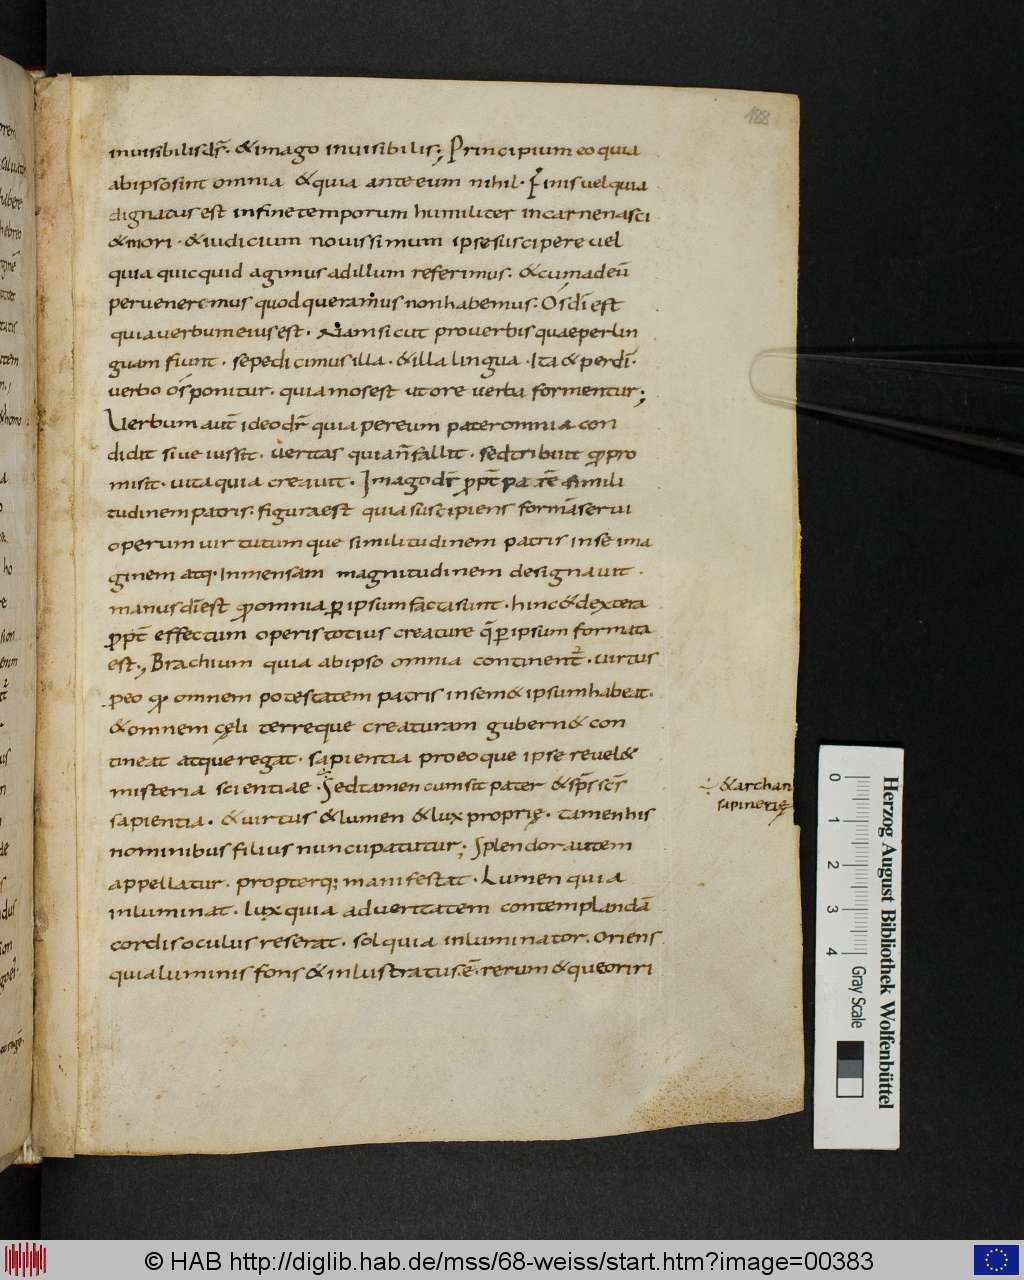 188
inuisibilis dr̄. & imago inuisibilis; Principium eo quia
ab ipso sint omnia & quia ante eum nihil. Finis uel quia
dignatus est in fine temporum humiliter in carne nasci
& mori. & iudicium nouissimum ipse suscipere uel
quia quicquid agimus ad illum referimus. & cum ad eū
peruenerimus quod queramus non habemus. Os dī est
quia uerbum eius est. Nam sicut pro uerbis quae per lin
guam fiunt. sepe dicimus illa. & illa lingua. Ita & per dī.
uerbo os ponitur. quia mos est ut ore uerba formentur;
Uerbum aut̄ ideo dr̄ quia per eum pater omnia con
didit siue iussit. ueritas quia n̄ fallit. sed tribuit qd pro
misit. uita quia creauit. Imago dr̄ ꝓpt̄ parē simili
tudinem patris. figura est quia suscipiens formā serui
operum uirtutumque similitudinem patris in se ima
ginem atq. Inmensam magnitudinem designauit.
manus dī est qd omnia ꝑ ipsum facta sunt. hinc & dextera
ꝓpt̄ effectum operis totius creature q̄ ꝑ ipsum formata
est; Brachium quia ab ipso omnia continent̄. uirtus
p eo qd omnem potestatem patris in sem& ipsum habeat.
& omnem cęli terreque creaturam gubern& con
tineat atque regat. sapientia pro eo que ipse reuel&
misteria scientiae. Sed tamen cum sit pater & sp̄s sc̄s
sapientia. & uirtus & lumen & lux proprię. tamen his
nominibus filius nuncupatutur; Splendor autem
appellatur. propter q; manifestat. Lumen quia
inluminat. lux quia ad ueritatem contemplandā
cordis oculus reserat. sol quia inluminator. Oriens
quia luminis fons & inlustratus ē. rerum & que oriri
& archan
sapinerię
0 1 2 3 4
Gray Scale
Herzog August Bibliothek Wolfenbüttel
© HAB http://diglib.hab.de/mss/68-weiss/start.htm?image=00383